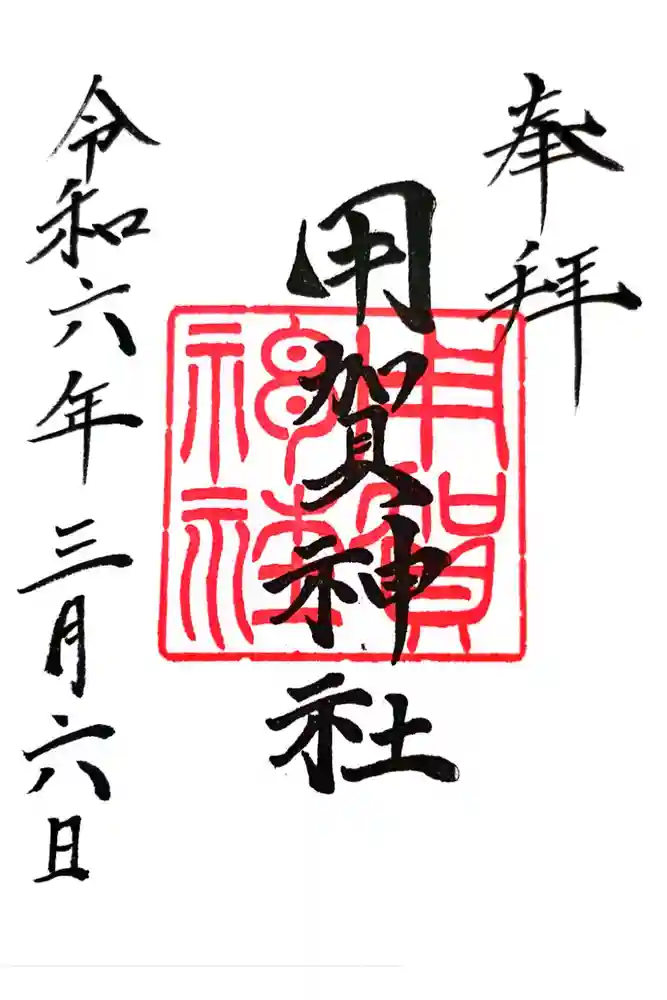 奉拝
用賀神社
用賀
神社
令和六年三月六日